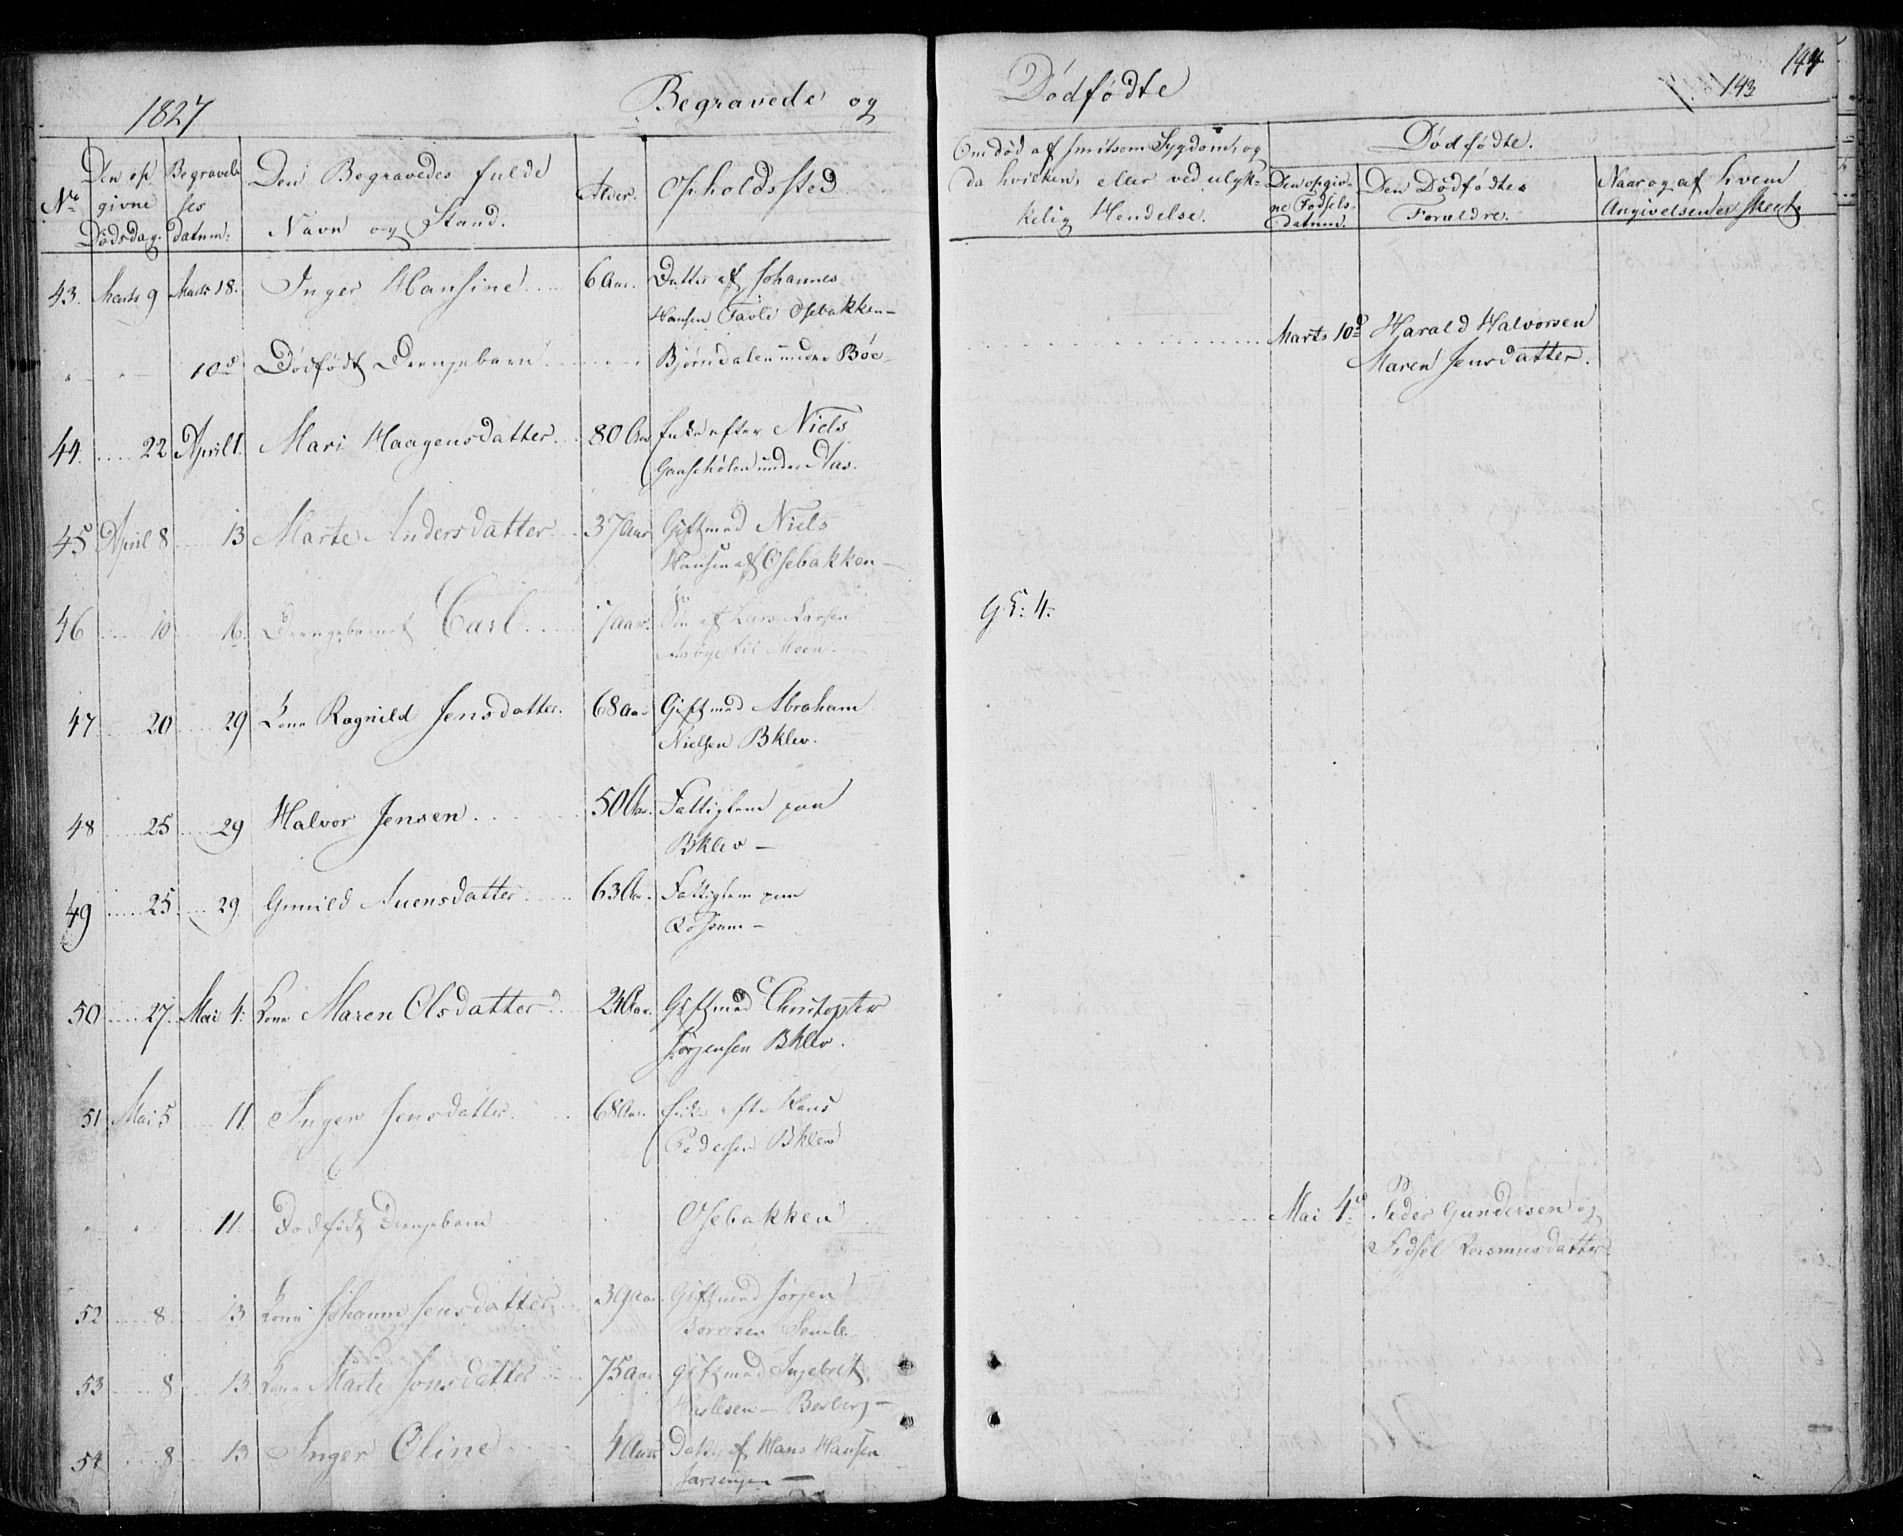 1827
Begravede og
Dødfødte
144
143
No
Den op
givne
Dødsdag.
Begravel
ses
datum:
Den Begravedes fulde
Navn og Stand.
Alder.
Opholdssted
Om død af smitsom Sygdom, og
da hvilken, eller ved ulyk-
kelig Hendelse.
Dødfødte.
Den opgiv-
ne Fødsels-
datum.
Den Dødfødtes
Forældre.
Naar og af hvem
Angivelsen er skeet.
43. Marts 9 Marts 18. Inger Hansine 6 Aar. Datter af Johannes
Hansen Osebakken
10de Dødfødt Drengebarn Bjørndalen under Böe
Marts 10de Harald Halvorsen
Maren Jensdatter.
44. 22 April 1. Mari Haagensdatter 80 Aar Enke efter Niels
under Aas.
45 April 8 13 Marte Andersdatter 37 Aar Gift med Niels
Hansen af Osebakken
46 10 16. Drengebarnet Carl 7 Aar. Søn af Lars Larsen
til Meen.
G. L: 4.
47 20 29 Kone Ragnild Jensdatter. 68 Aar Gift med Abraham
Nielsen Bklev.
48 25 29 Halvor Jensen 50 Aar. Fattiglem paa
Bklev
49 25 29 Gunild Auensdatter 63 Aar. Fattiglem paa
50 27. Mai 4. Kone Maren Olsdatter 24 Aar. Gift med Christopher
Jørgensen Bklev.
51 Mai 5 11. Inger Jensdatter 68 Aar. Enke efter Hans
Pedersen Bklev
11. Dødfødt Drengebarn Osebakken
Mai 4de Peder Gundersen og
Rasmusdatter
52 8 13 Kone Johanne Jensdatter 39 Aar Gift med Jørgen
53 8 13. Kone Marte Jonsdatter 75 Aar Gift med Ingebret
54 8 13 Inger Oline 4 Aar Dat. af Hans Hansen